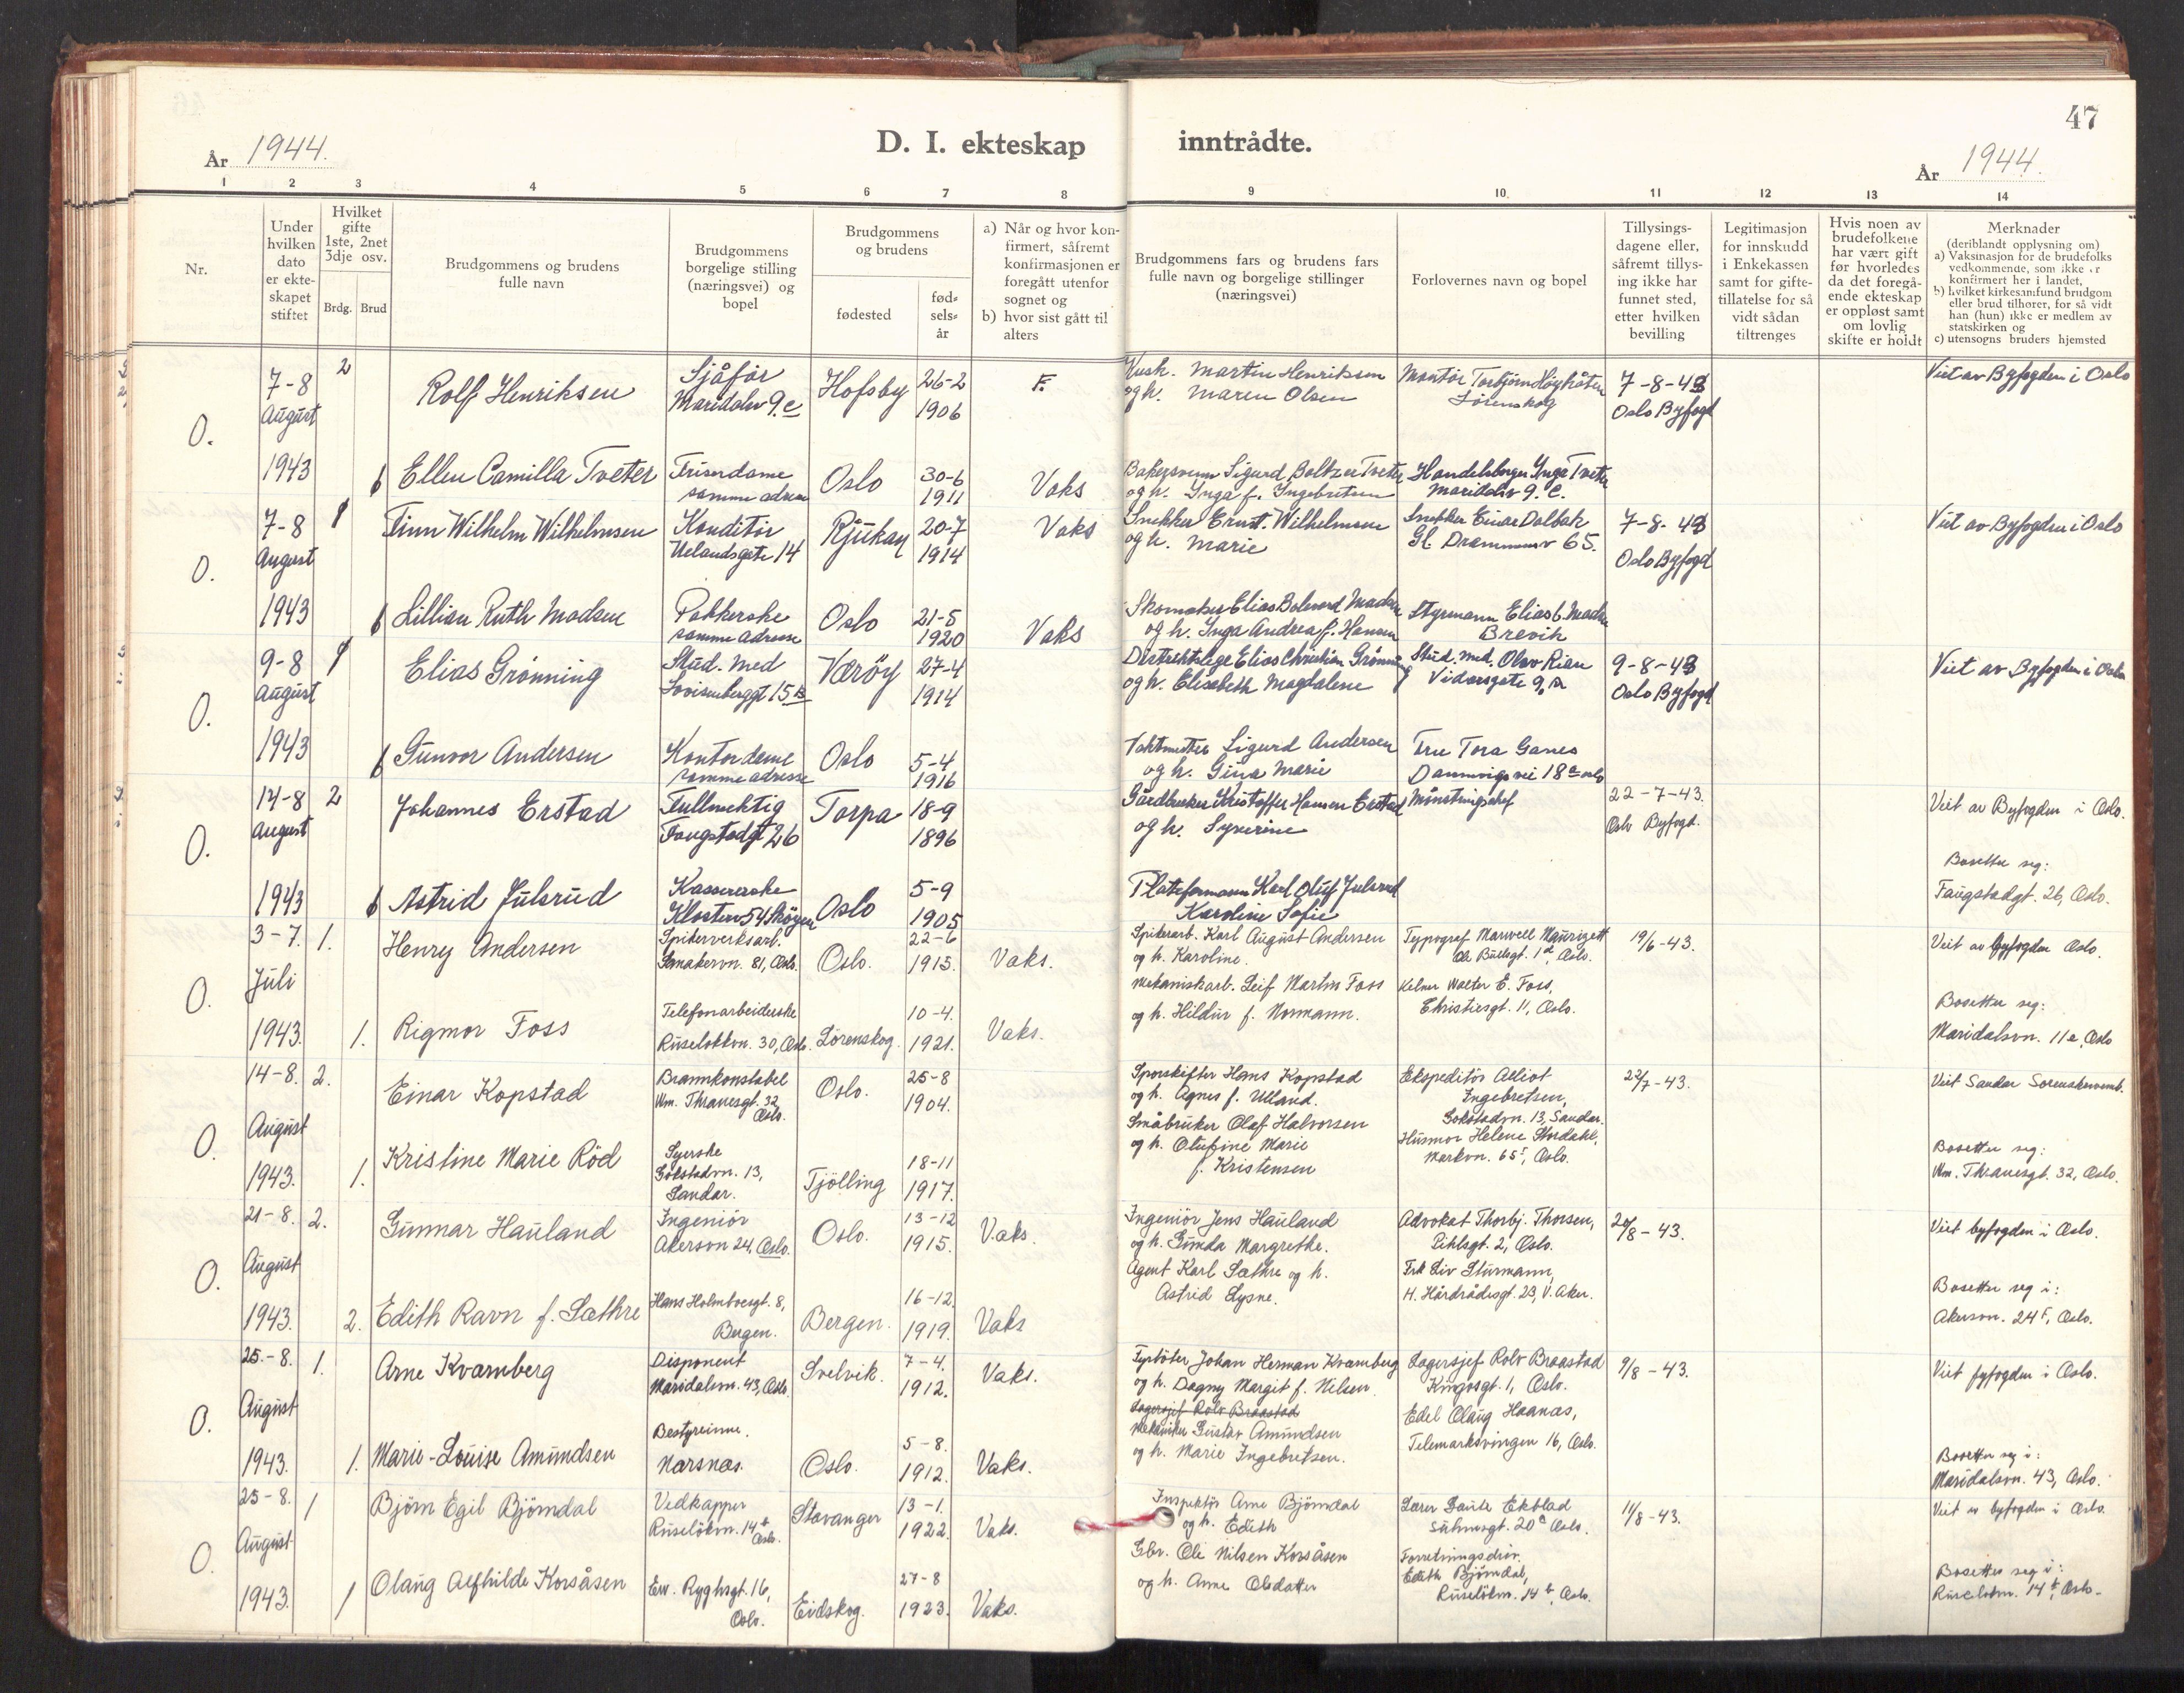 47
År 1944.
D. I. ekteskap inntrådte.
År 1944.
1 2 3 4 5 6 7 8 9 10 11 12 13 14
Nr.
Under hvilken dato er ekte-skapet stiftet
Hvilket gifte 1ste, 2net 3dje osv.
Brdg. Brud
Brudgommens og brudens fulle navn
Brudgommens borgelige stilling (næringsvei) og bopel
Brudgommens og brudens
fødested
fød-sels-år
a) Når og hvor kon-firmert, såfremt konfirmasjonen er foregått utenfor sognet og
b) hvor sist gått til alters
Brudgommens fars og brudens fars fulle navn og borgelige stillinger (næringsvei)
Forlovernes navn og bopel
Tillysings-dagene eller, såfremt tillys-ing ikke har funnet sted, etter hvilken bevilling
Legitimasjon for innskudd i Enkekassen samt for gifte-tillatelse for så vidt sådan tiltrenges
Hvis noen av brudefolkene har vært gift før hvorledes da det foregå-ende ekteskap er oppløst samt om lovlig skifte er holdt
Merknader
(deriblandt opplysning om)
a) Vaksinasjon for de brudefolks vedkommende, som ikke er konfirmert her i landet,
b) hvilket kirkesamfund brudgom eller brud tilhører, for så vidt han (hun) ikke er medlem av statskirken og
c) utensogns bruders hjemsted
O.
7-8 August 1943
2
Rolf Henriksen
Sjåfør
Maridalsv 9.c
Hofsby
26-2
1906
F.
Kusk. Martin Henriksen
og h. Maren Olsen
Montør Torbjørn Høyhåten
Lørenskog
7-8-43
Oslo Byfogd
Viet av Byfogden i Oslo
Ellen Camilla Tveter
Friserdame
samme adresse
Oslo
30-6
1911
Vaks
Bakersvenn Sigurd Boltzer Tveter
og h. Inga f. Ingebretsen
Handelsborger Inga Tveter
Maridalsv 9. C.
O.
7-8 August 1943
1
Finn Wilhelm Wilhelmsen
Konditor
Uelandsgate 14
Rjukan
20-7
1914
Vaks
Snekker Ernst. Wilhelmsen
og h. Marie
Snekker Einar Dalbak
Gl. Drammensv 65.
7-8-43
Oslo Byfogd
Viet av Byfogden i Oslo
Lillian Ruth Madsen
Pakkerske
samme adresse
Oslo
21-5
1920
Vaks
Skomaker Elias Madsen
og h. Inga Andrea f. Hansen
Styrmann Elias B. Madsen
Brevik
O.
9-8 August 1943
1
Elias Grønning
Stud. med
Lovisenberggt 15B
Værøy
27-4
1914
Distriktslege Elias Christian Grønning
og h. Elisabeth Magdalene
Stud. med. Olav Rian
Vidarsgate 9. A
9-8-43
Oslo Byfogd
Viet av Byfogden i Oslo
Gunvor Andersen
Kontordame
samme adresse
Oslo
5-4
1916
Vaktmester Sigurd Andersen
og h. Gina Marie
Fru Tora Ganes
Dannevigsvei 18c Oslo
O.
14-8 August 1943
2
Johannes Erstad
Fullmektig
Fougstadgt 26
Torpa
18-9
1896
Gårdbruker Kristoffer Hansen Erstad
og h. Syverine
Mønstringschef
22-7-43.
Oslo Byfogd.
Viet av Byfogden i Oslo.
Astrid Julsrud
Kassererske
Klosterv 54 Skøyen
Oslo
5-9
1905
Plateformann Karl Oluf Julsrud
Karoline Sofie
Bosetter seg:
Faugstadgt. 26, Oslo.
O.
3-7. Juli 1943.
1.
Henry Andersen
Spikerverksarb.
Smakervn. 81, Oslo.
Oslo.
22-6
1915.
Vaks.
Spikerarb. Karl August Andersen
og h. Karoline.
Typograf Marwell Maurizett
Ole Bullsgt. 1d, Oslo.
19/6-43.
Viet av byfogden Oslo.
1.
Rigmor Foss
Telefonarbeiderske
Ruseløkkvn. 30, Oslo.
Lørenskog.
10-4.
1921.
Vaks.
Mekaniskarb. Leif Martin Foss
og h. Hildur f. Normann.
Kelner Walter E. Foss,
Christiesgt. 11, Oslo.
Bosetter seg:
Maridalsvn. 11e, Oslo
O.
14-8. August 1943.
2.
Einar Kopstad
Brannkonstabel
Wm. Thranesgt. 32
Oslo.
Oslo.
25-8
1904.
Sporskifter Hans Kopstad
og h. Agnes f. Ulland.
Ekspeditør Alliot
Ingebretsen,
Gokstadvn. 13, Sandar.
22/7-43.
Viet Sandar Sorenskriveremb.
1.
Kristine Marie Röd
Syerske
Gokstadvn. 13,
Sandar.
Tjölling
18-11
1917.
Småbruker Olaf Halvorsen
og h. Olufine Marie
f. Kristensen
Husmor Helene Stordahl,
Markvn. 65I, Oslo.
Bosetter seg:
Wm. Thranesgt. 32, Oslo.
O.
21-8. August 1943.
2.
Gunnar Hauland
Ingeniør
Akersvn 24, Oslo.
Oslo.
13-12
1915.
Vaks.
Ingeniør Jens Hauland
og h. Gunda Margrethe.
Advokat Thorbj. Thorsen,
Pihlsgt. 2, Oslo.
20/8-43.
Viet byfogden i Oslo.
2.
Edith Ravn f. Sæthre
Hans Holmboesgt. 8,
Bergen.
Bergen.
16-12.
1919.
Vaks
Agent Karl Sæthre og h.
Astrid Lysne.
Frk Liv Sturmann,
H. Hårdrådesgt. 23, V. Aker.
Bosetter seg i:
Akersvn. 24F, Oslo.
O.
25.-8. August 1943.
1.
Arne Kvarnberg
Disponent
Maridalsvn. 43, Oslo.
Svelvik.
7-4.
1912.
Vaks.
Fyrbøter Johan Herman Kvarnberg
og h. Dagny Margit f. Nilsen.
Lagersjef Rolv Braastad
Kingosgt. 1, Oslo.
9/8-43.
Viet byfogden i Oslo.
1.
Marie-Louise Amundsen
Bestyrerinne.
Nærsnes.
Oslo.
5-8.
1912.
Vaks.
Lagersjef Rolv Braastad
Mekaniker Gustav Amundsen
og h. Marie Ingebretsen.
Edel Olaug Haanæs,
Telemarksvingen 16, Oslo.
Bosetter seg i:
Maridalsvn. 43, Oslo.
O.
25-8. August 1943.
1
Björn Egil Björndal
Vedkapper
Ruseløkvn. 14b
Oslo.
Stavanger
13-1.
1922.
Vaks.
Inspektör Arne Björndal
og h. Edith
Lærer Saute Ekblad
Suhmsgt. 20a Oslo.
11/8-43.
Viet av byfogden i Oslo.
1
Olaug Alfhilde Korsåsen
Erv. Ryghsgt. 16,
Oslo.
Eidskog.
27-8
1923.
Vaks.
Gbr. Ole Nilsen Korsåsen
og h. Anne Olsdatter
Forretningsdriv.
Edith Björndal,
Ruseløkvn. 14b, Oslo.
Bosetter seg i:
Ruseløkvn. 14b, Oslo.